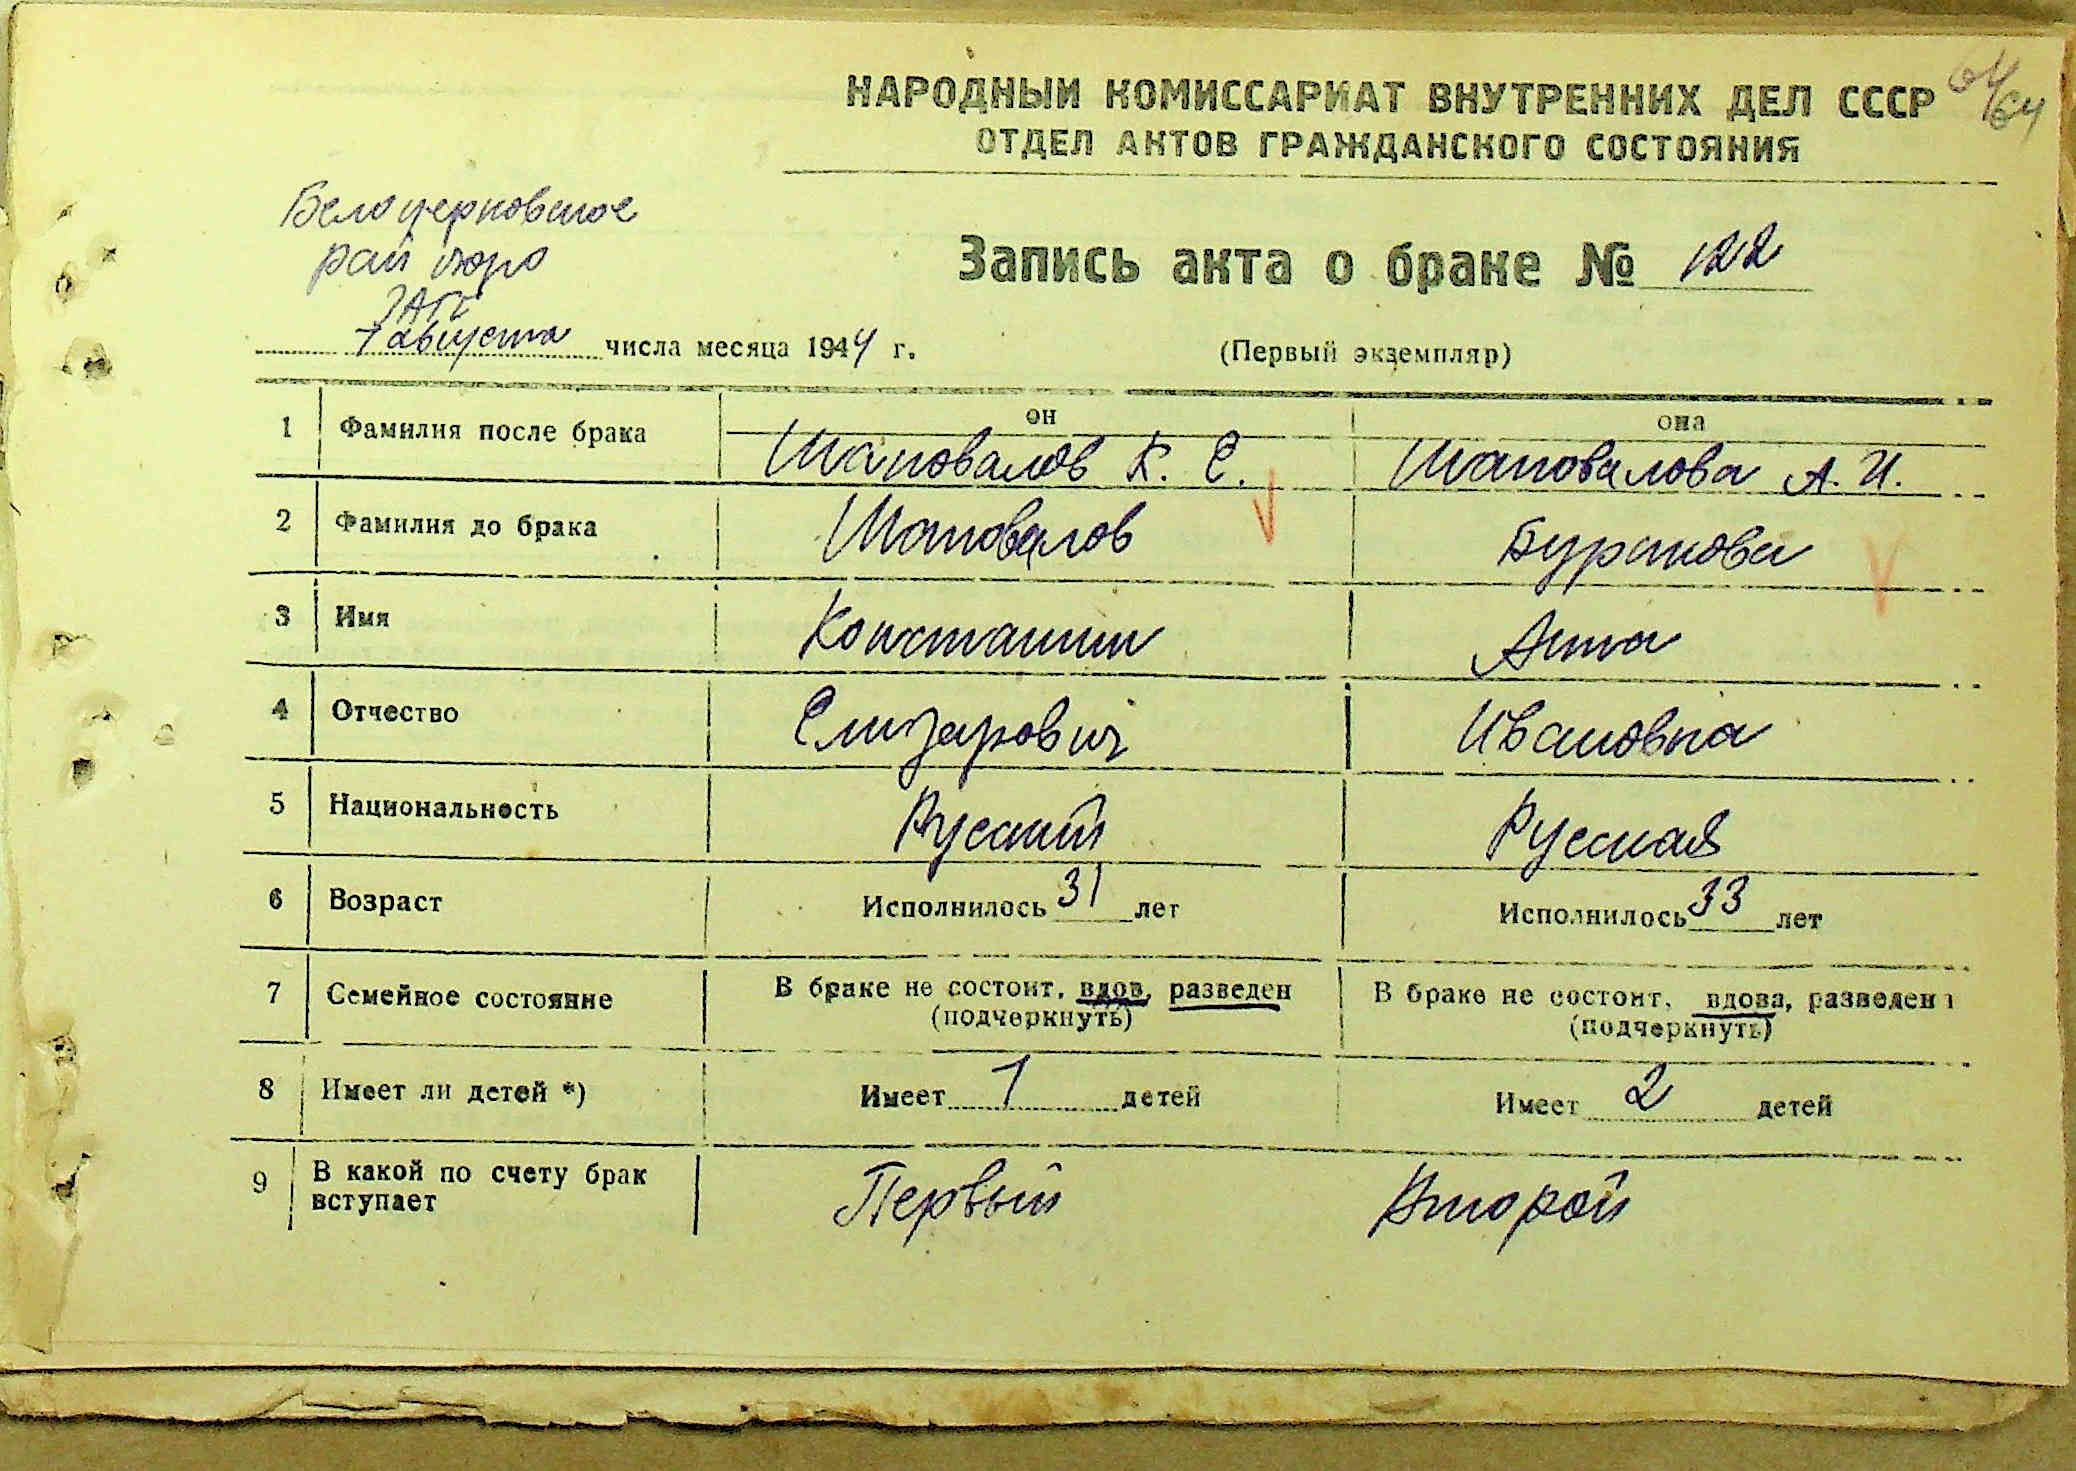 64/64
НАРОДНЫЙ КОМИССАРИАТ ВНУТРЕННИХ ДЕЛ СССР
ОТДЕЛ АКТОВ ГРАЖДАНСКОГО СОСТОЯНИЯ
Белоцерковское
рай бюро
ЗАГС
Запись акта о браке № 122
7 августа числа месяца 1944 г.
(Первый экземпляр)
он она
1 Фамилия после брака Шаповалов К. Е. Шаповалова А. И.
2 Фамилия до брака Шаповалов Буракова
3 Имя Константин Анна
4 Отчество Елизарович Ивановна
5 Национальность Русский Русская
6 Возраст Исполнилось 31 лет Исполнилось 33 лет
7 Семейное состояние В браке не состоит, вдов, разведен (подчеркнуть) В браке не состоит, вдова, разведен (подчеркнуть)
8 Имеет ли детей *) Имеет 1 детей Имеет 2 детей
9 В какой по счету брак
вступает Первый Второй